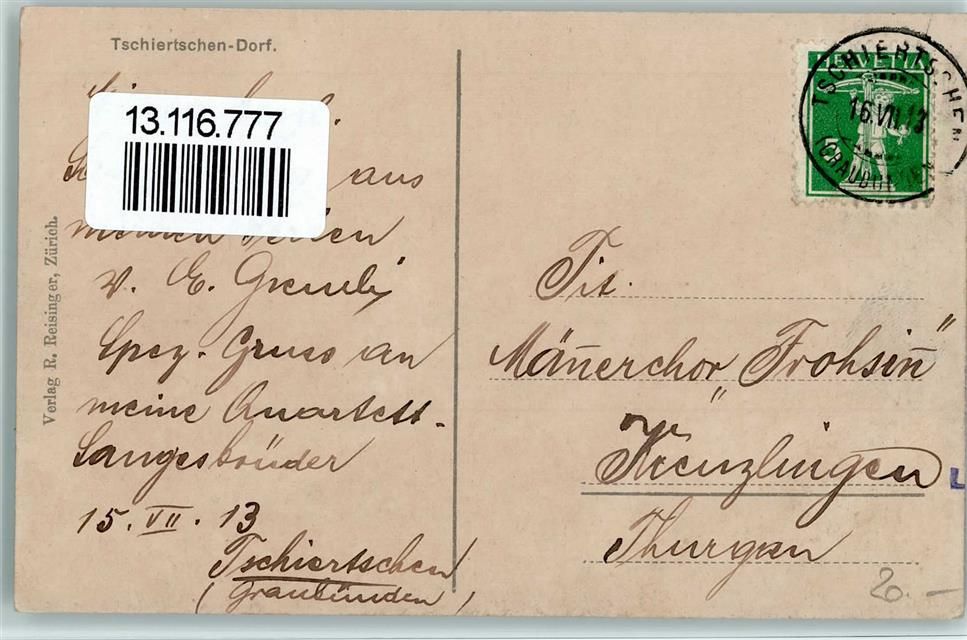 Tschiertschen-Dorf.
13.116.777
aus
meinen Ferien
v. E. Greuli
Spez. Gruss an
meine Quartett-
Sangesbrüder
15. VII. 13
Tschiertschen
(Graubünden)
Verlag R. Reisinger, Zürich.
HELVETIA
5
TSCHIERTSCHEN
16.VII.13
(GRAUBÜNDEN)
Tit.
Mañerchor „Frohsiñ"
Kreuzlingen
Thurgau
20.-